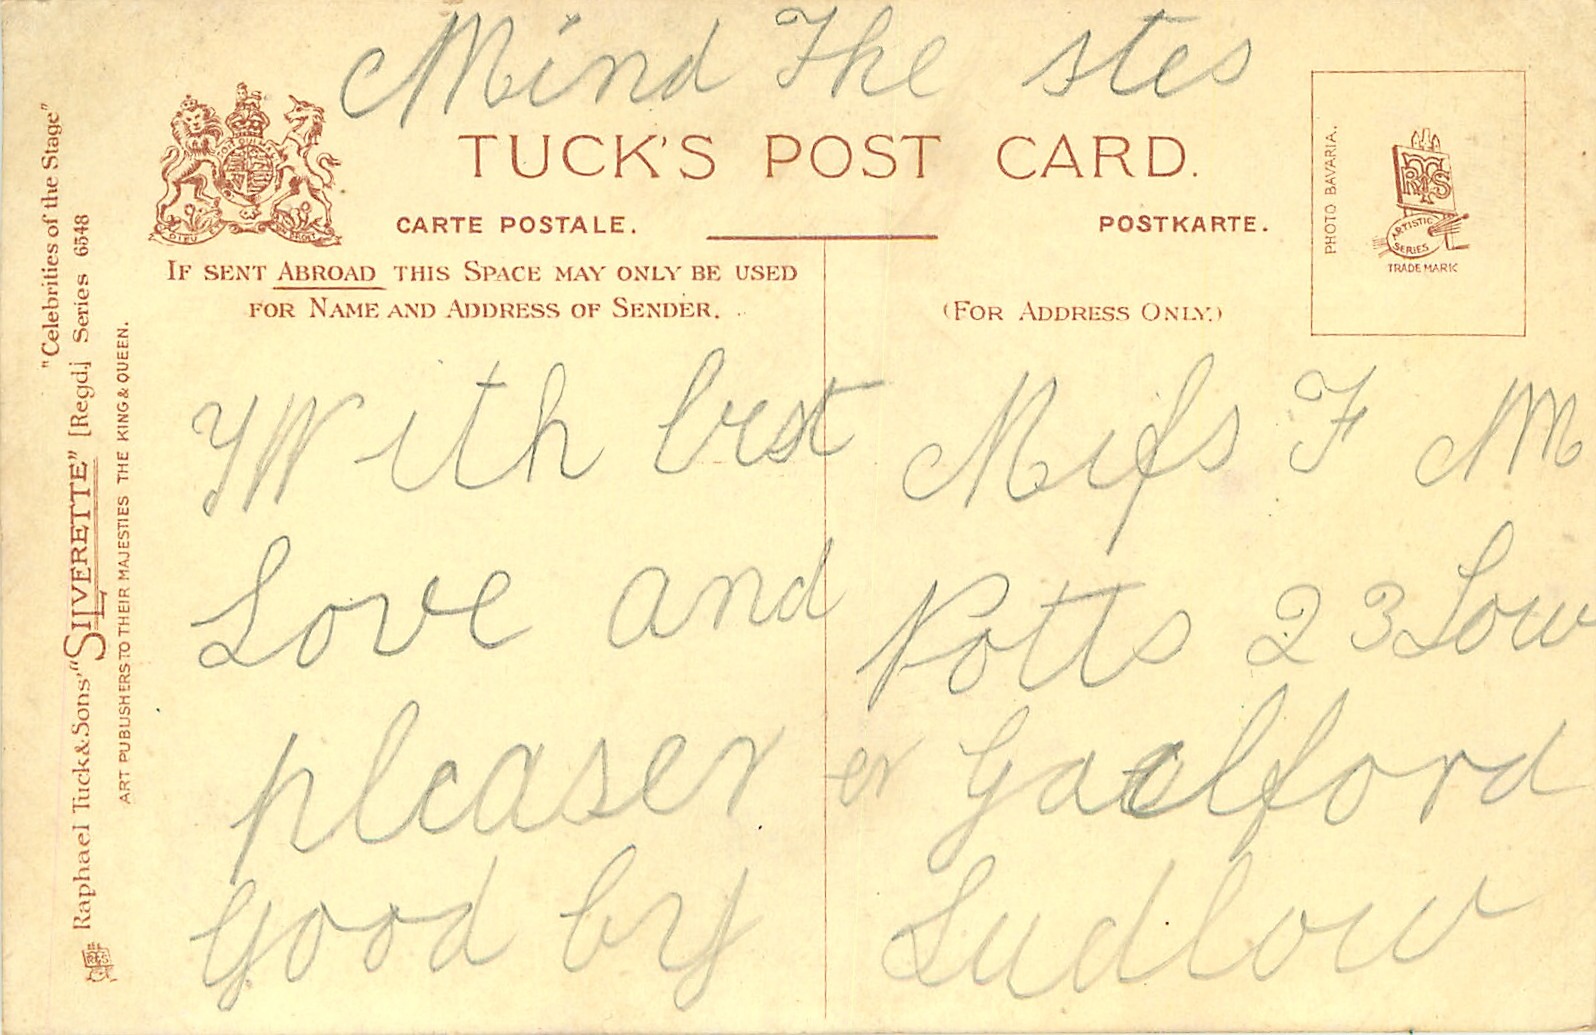 Mind The stes
TUCK'S POST CARD.
CARTE POSTALE.
POSTKARTE.
IF SENT ABROAD THIS SPACE MAY ONLY BE USED
FOR NAME AND ADDRESS OF SENDER.
(FOR ADDRESS ONLY.)
PHOTO BAVARIA.
ARTISTIC
SERIES
TRADE MARK
DIEU
With best
Love and
pleaser
good by
Miſs F M
Potts 23 Low
er Galford
Ludlow
"Celebrities of the Stage"
Raphael Tuck & Sons' "SILVERETTE" [Regd.] Series 6548
ART PUBLISHERS TO THEIR MAJESTIES THE KING & QUEEN.